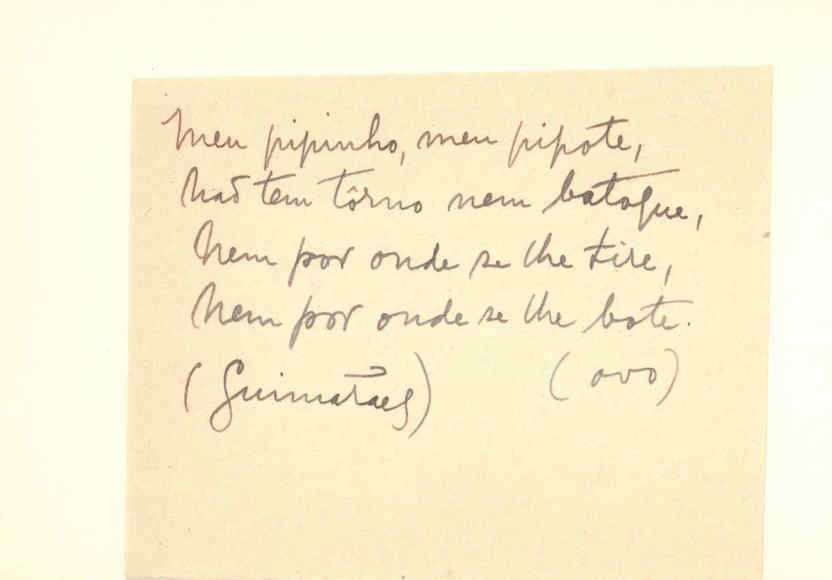 Meu pipinho, meu pipote,
Não tem tôrno nem batoque,
Nem por onde se lhe tire,
Nem por onde se lhe bote.
(Guimarães) (ovo)